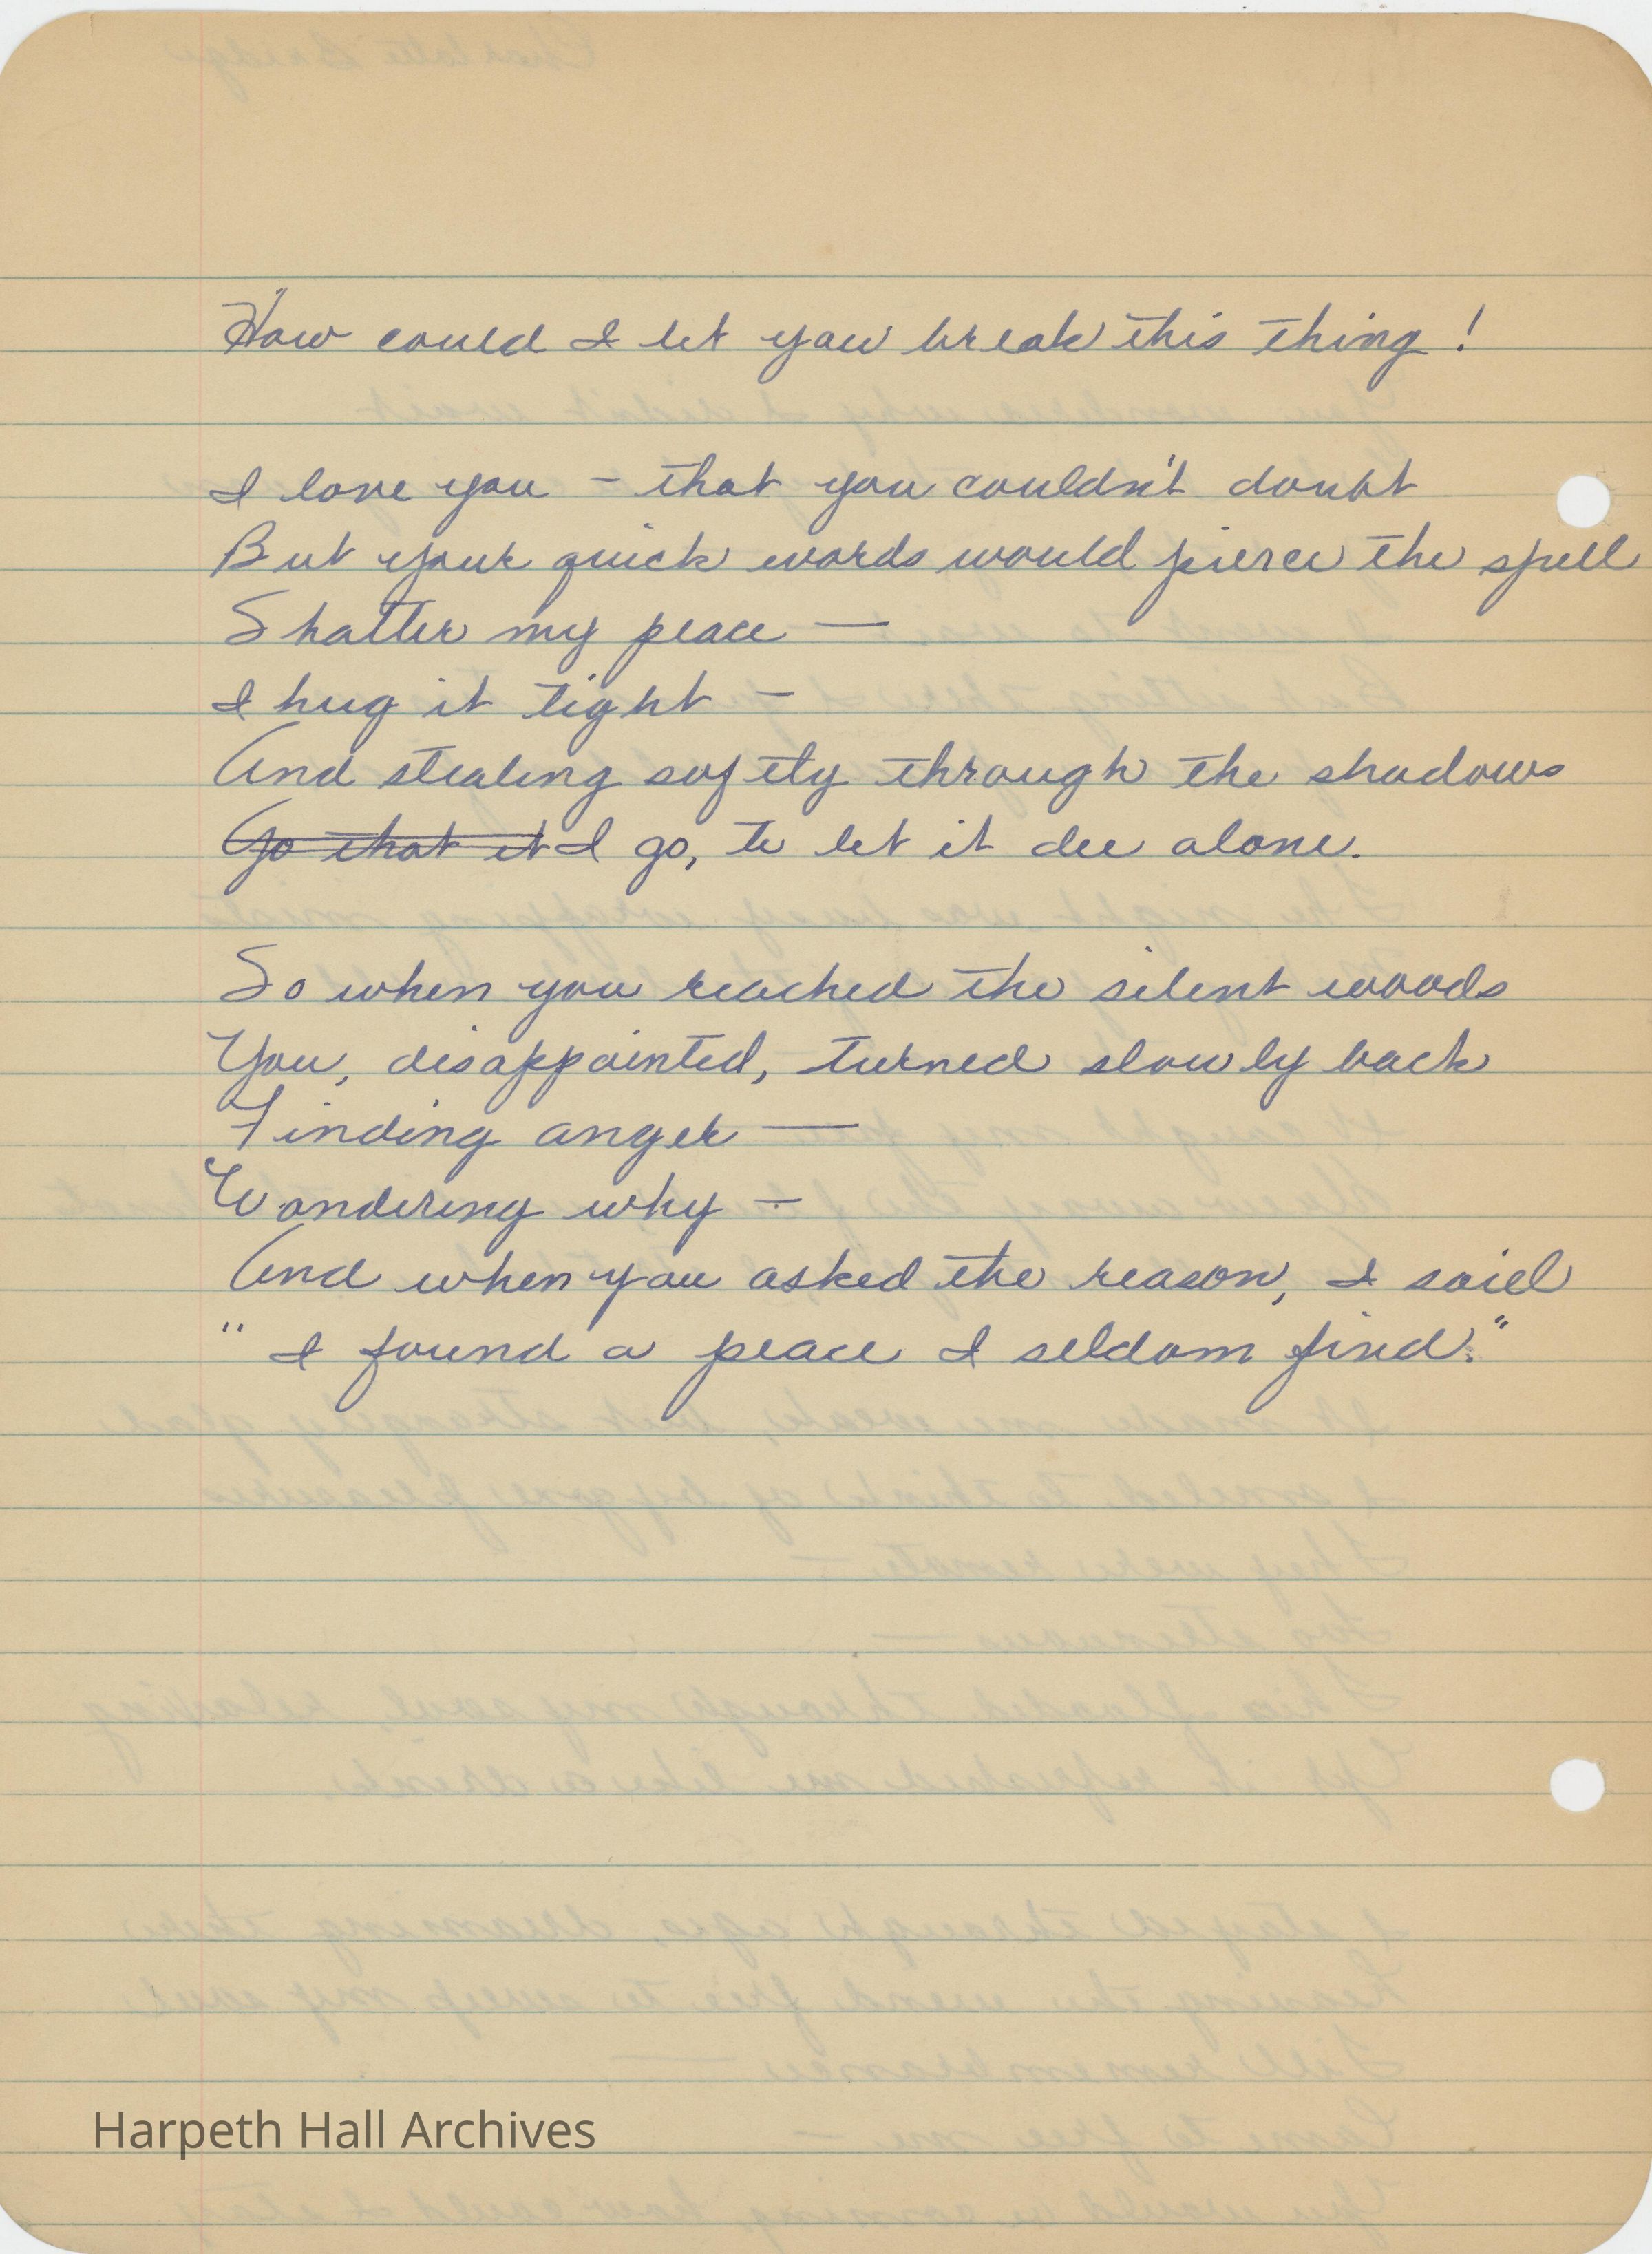 How could I let you break this thing!
I love you - that you couldn't doubt
But your quick words would pierce the spell
Shatter my peace —
I hug it tight -
And stealing softly through the shadows
Go that it I go, to let it die alone.
So when you reached the silent woods
You, disappointed, turned slowly back
Finding anger —
Wondering why -
And when you asked the reason, I said
" I found a peace I seldom find."
Harpeth Hall Archives